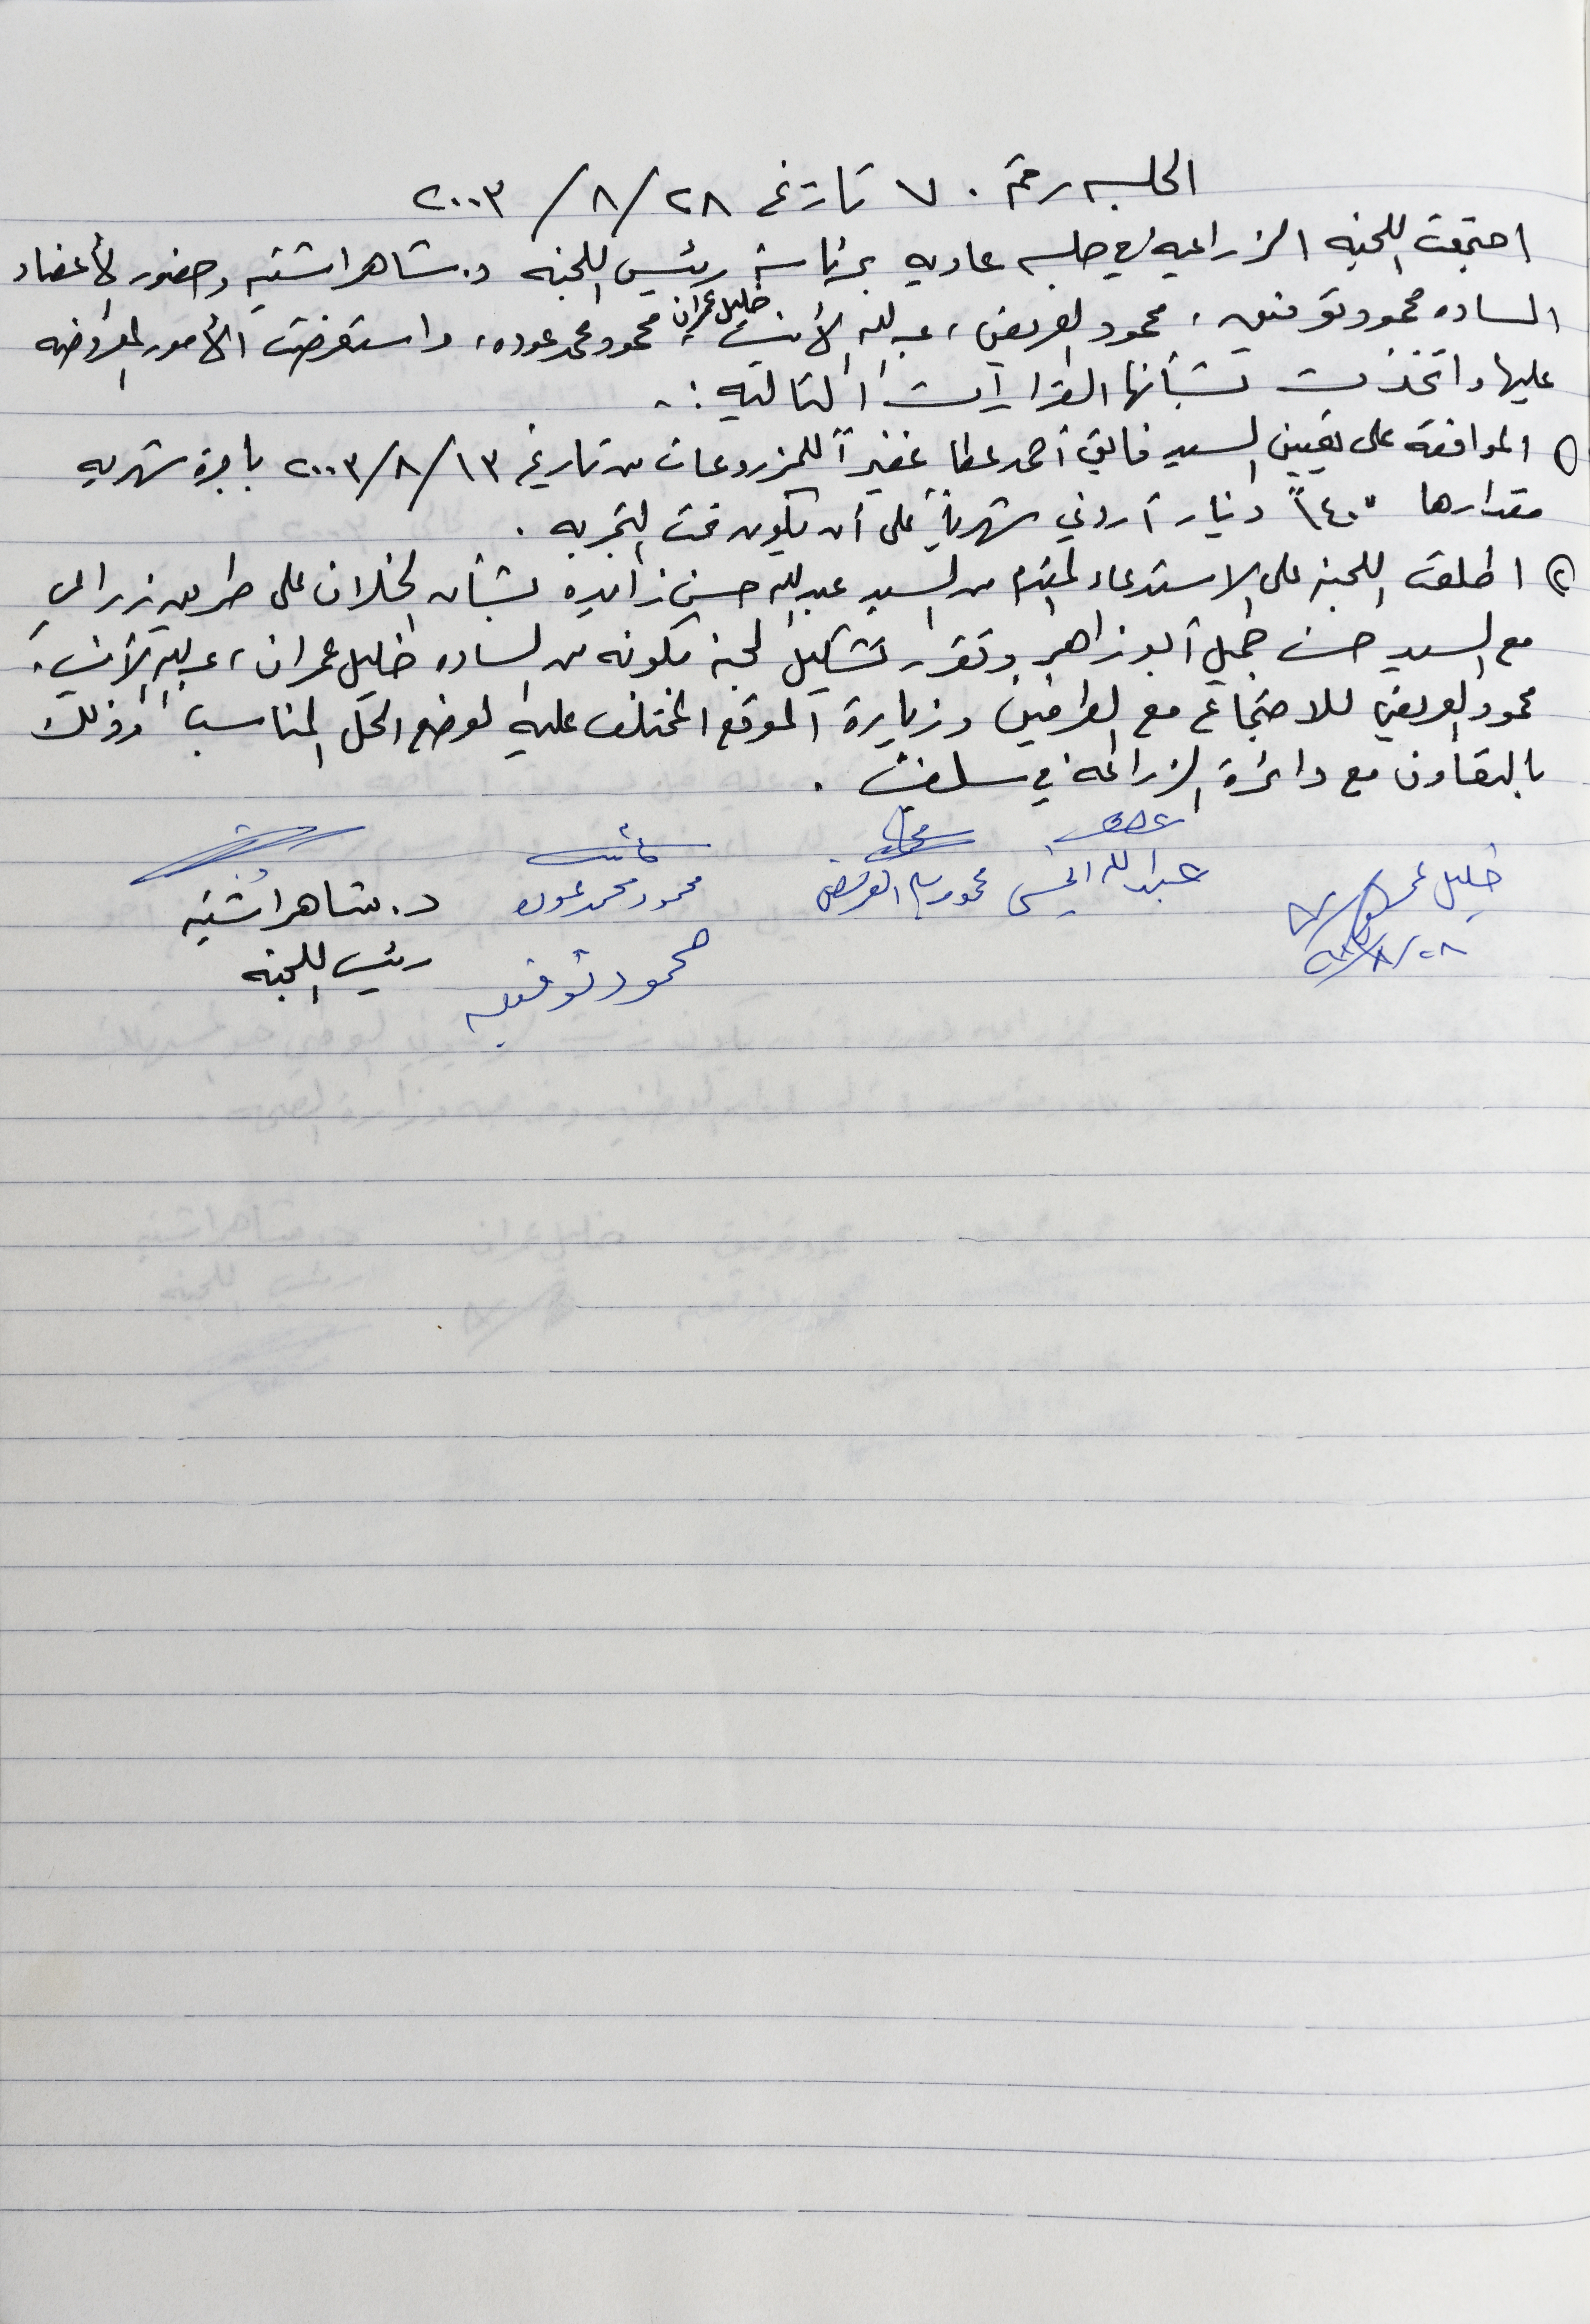 الجلسه رقم ٧٠ تاريخ ٢٨/٨/٢٠٠٣
اجتمعت اللجنه الزراعيه في جلسه عاديه برئاسة رئيس اللجنه د. شاهر اشتيه وحضور الأعضاء
الساده محمود توفيق، محمود العريض، عبدالله الأنيس، خليل عمران، محمود محمد عوده، واستعرضت الأمور المعروضه
عليها واتخذت بشأنها القرارات التاليه :-
١) الموافقه على تعيين السيد فائق أحمد عطا غفيراً للمزروعات من تاريخ ١٣/٨/٢٠٠٣ باجرة شهريه
مقدارها "١٤٠" دينار أردني شهرياً على أن يكون تحت التجربه .
٢) اطلعت اللجنه على الاستدعاء المقدم من السيد عبدالله حسن زايده بشأن الخلاف على طريق زراعي
مع السيد حسن جميل أبو زاهر وتقرر تشكيل لجنه مكونه من الساده خليل عمران، عبدالله الأنيس،
محمود العريض للاجتماع مع الطرفين وزيارة الموقع المختلف عليه لوضع الحل المناسب وذلك
بالتعاون مع دائرة الزراعه في سلفيت .
خليل عمران
٢٨/٨
عبدالله
محمود
محمود محمد عوده
د. شاهر اشتيه
محمود توفيق
رئيس اللجنه